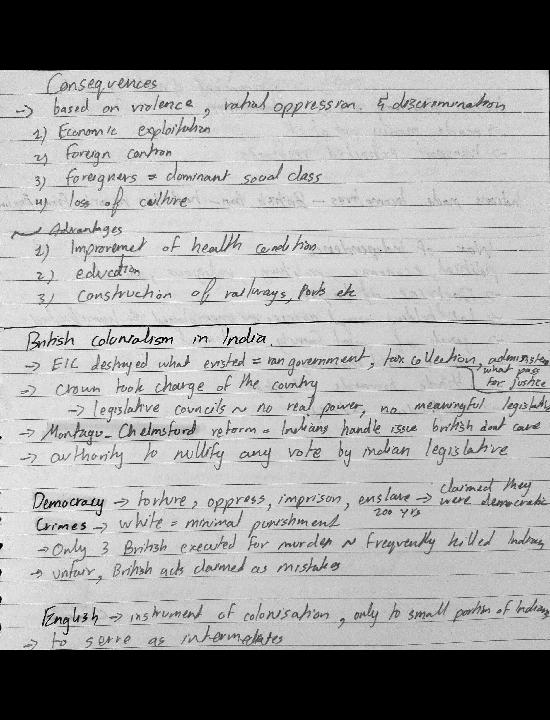 Consequences
-> based on violence, ratial oppression. & discrimination
1) Economic exploitation
2) Foreign contron
3) foreigners = dominant social class
4) loss of culture
~ Advantages
1) Improvemet of health condition
2) education
3) Construction of railways, Ports etc
British colonialism in India.
-> EIC destroyed what existed = ran government, tax collection, administer
what pass for justice
-> Crown took charge of the country
-> legislative councils ~ no real power, no meaningful legislative
-> Montagu-Chelmsford reform = Indians handle issue british dont care
-> authority to nullify any vote by indian legislative
Democracy -> torture, oppress, imprison, enslave -> claimed they were democratic
200 yrs
Crimes -> white = minimal punishment
-> Only 3 British executed for murders ~ frequently killed Indians
-> unfair, British acts claimed as mistakes
English -> instrument of colonisation, only to small portion of Indians
-> to serve as intermediates